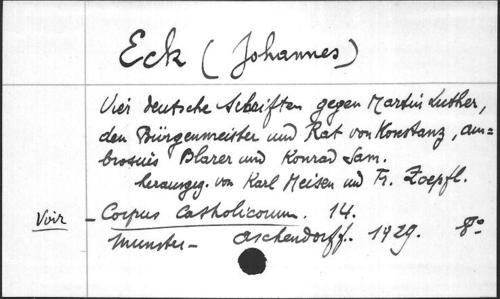 Eck (Johannes)
Vier deutsche Schriften gegen Martin Luther,
den Bürgenmeister und Rat von Konstanz, Am=
brosius Blarer und Konrad Sam.
herausgeg. von Karl Meisen und Fr. Zoepfl.
Voir – Corpus Catholicorum. 14.
Munster – Aschendorff. 1929. 8°